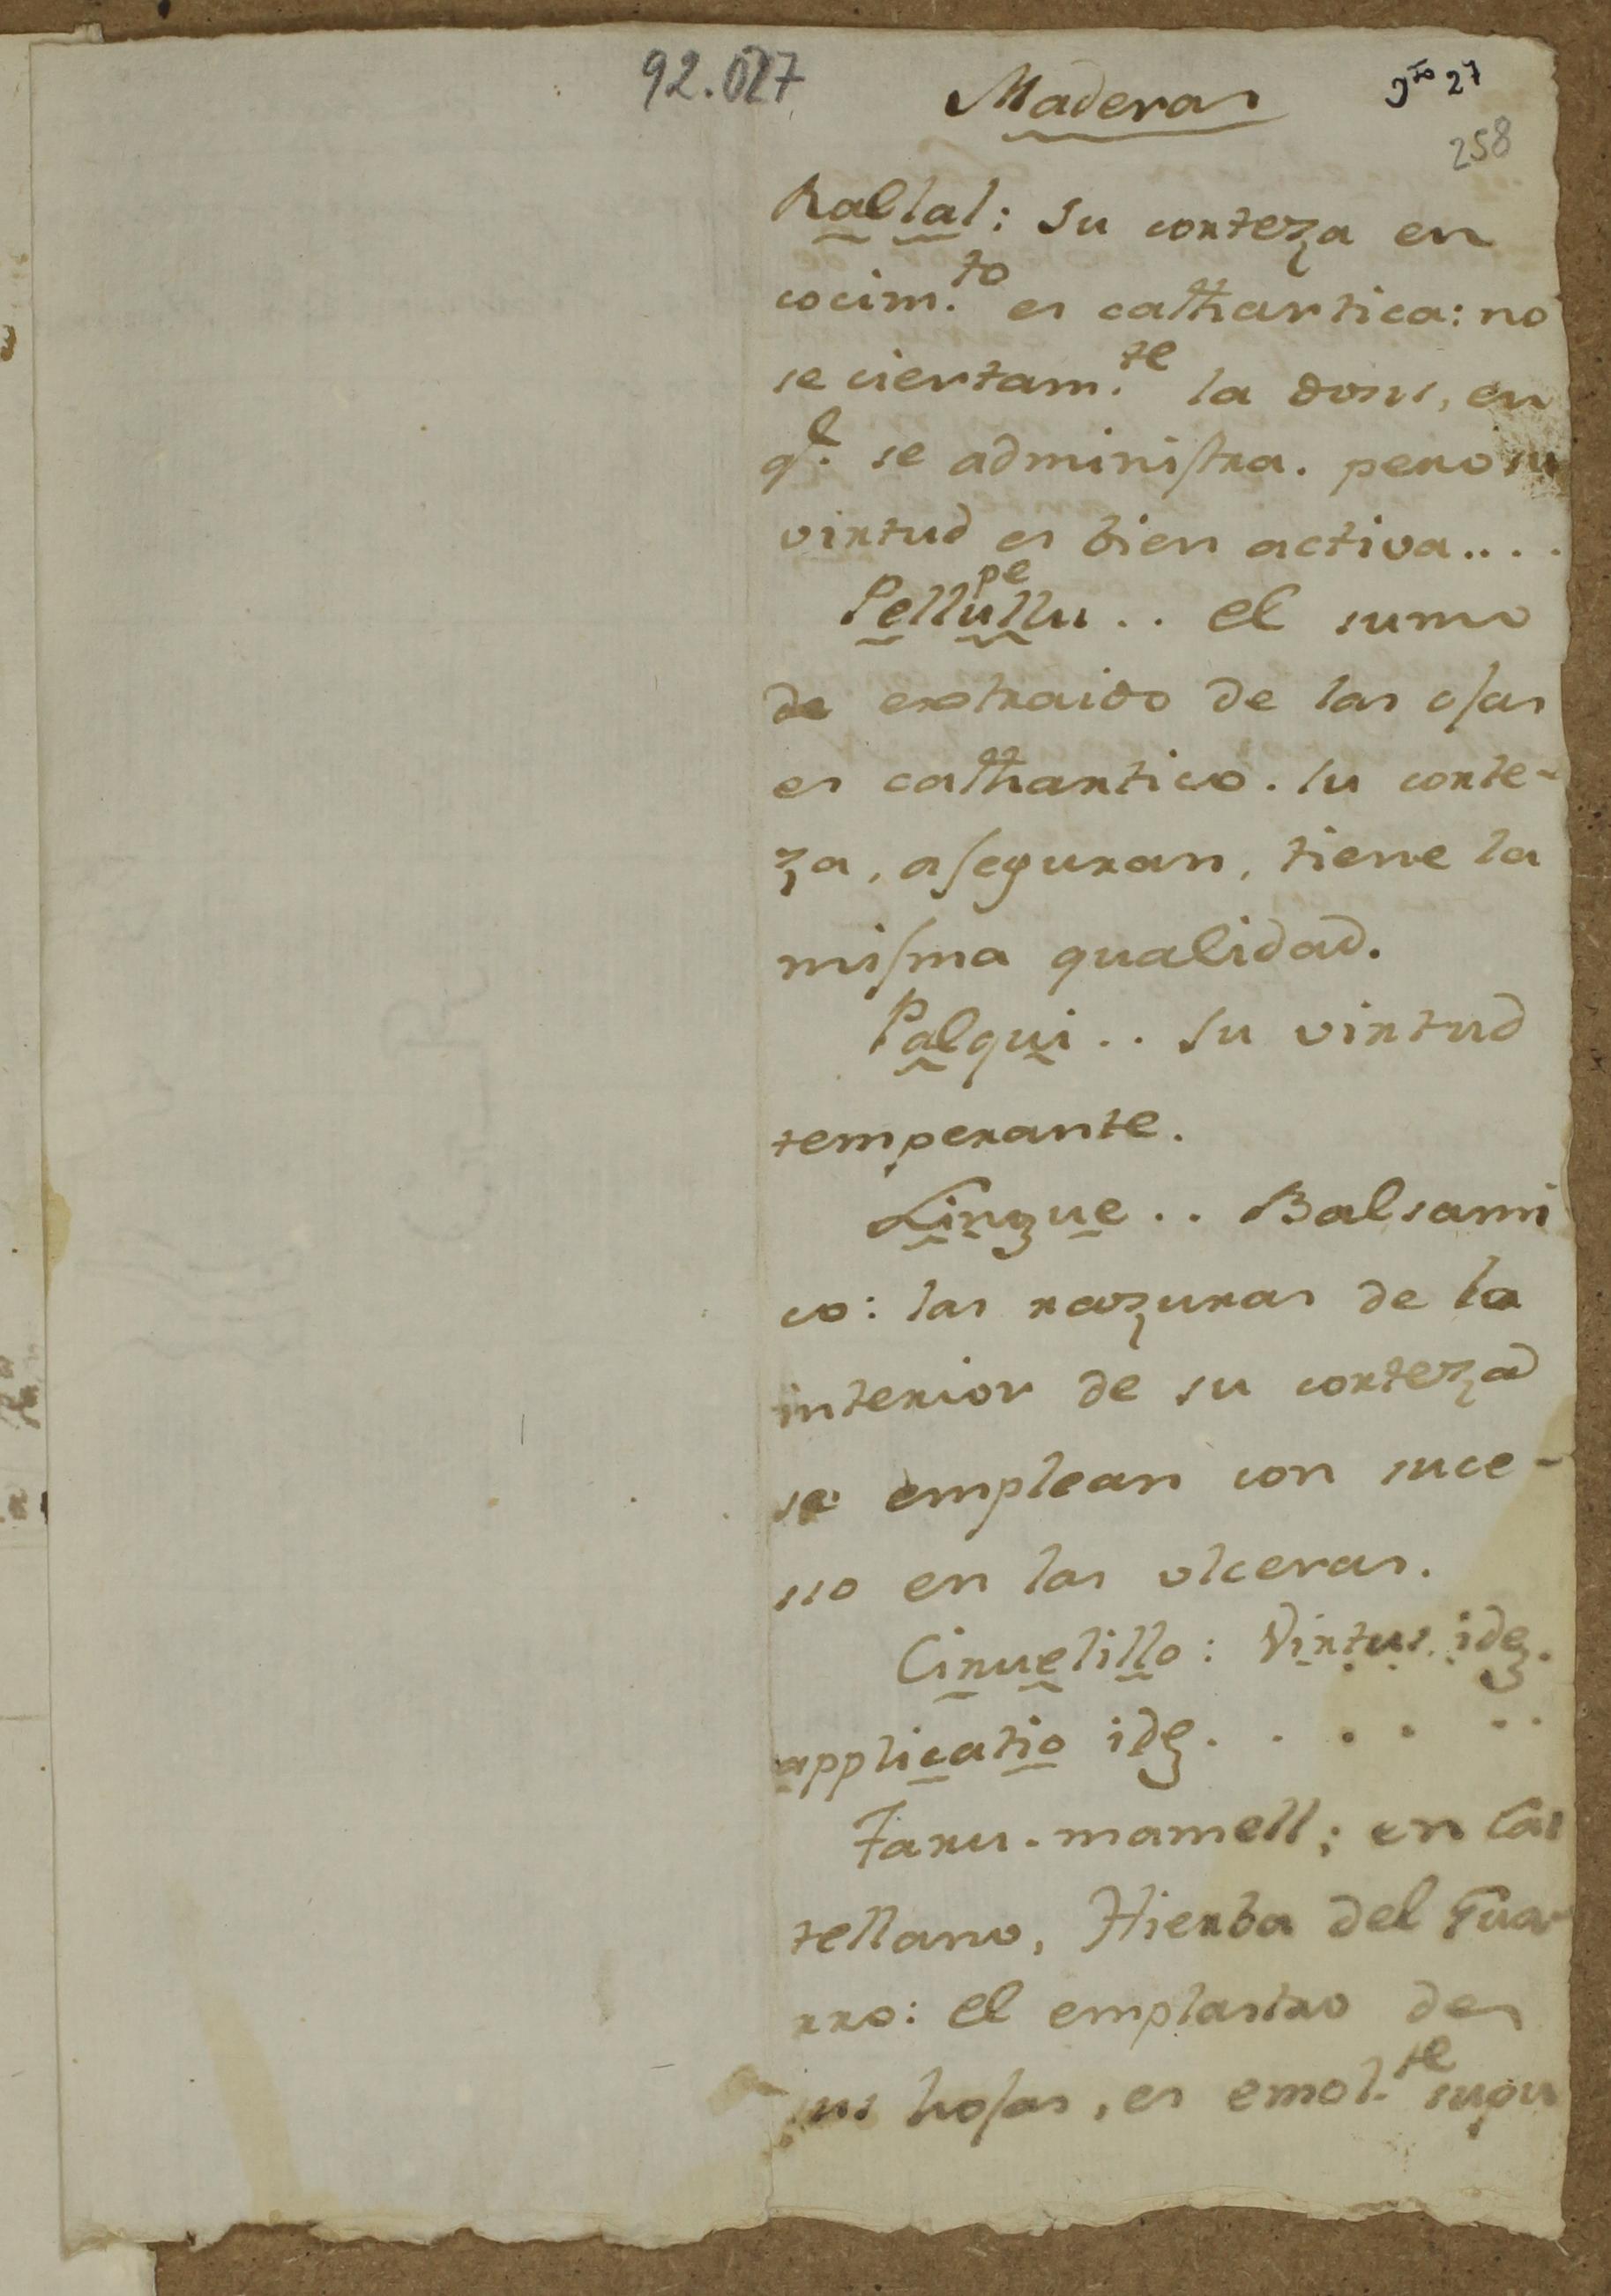 92.027
Maderas
9to 27
258
Rallal: su corteza en
cocim.to es cathartica: no
se ciertam.te la dosis, en
q.e se administra. pero su
virtud es bien activa....
Pellupellu.. el sumo
de extraido de las ojas
es cathartico. su corte-
za, aseguran, tiene la
misma qualidad.
Palqui.. su virtud
temperante.
Lingue.. Balsami
co: las razuras de la
interior de su corteza
se emplean con suce-
sso en las ulceras.
Ciruelillo: Virtus idē.
applicatio idē. . . . . .
Taru-mamell; en Cas
tellano, Hierba del
rro: el emplastro de
sus hojas, es emol.te supu